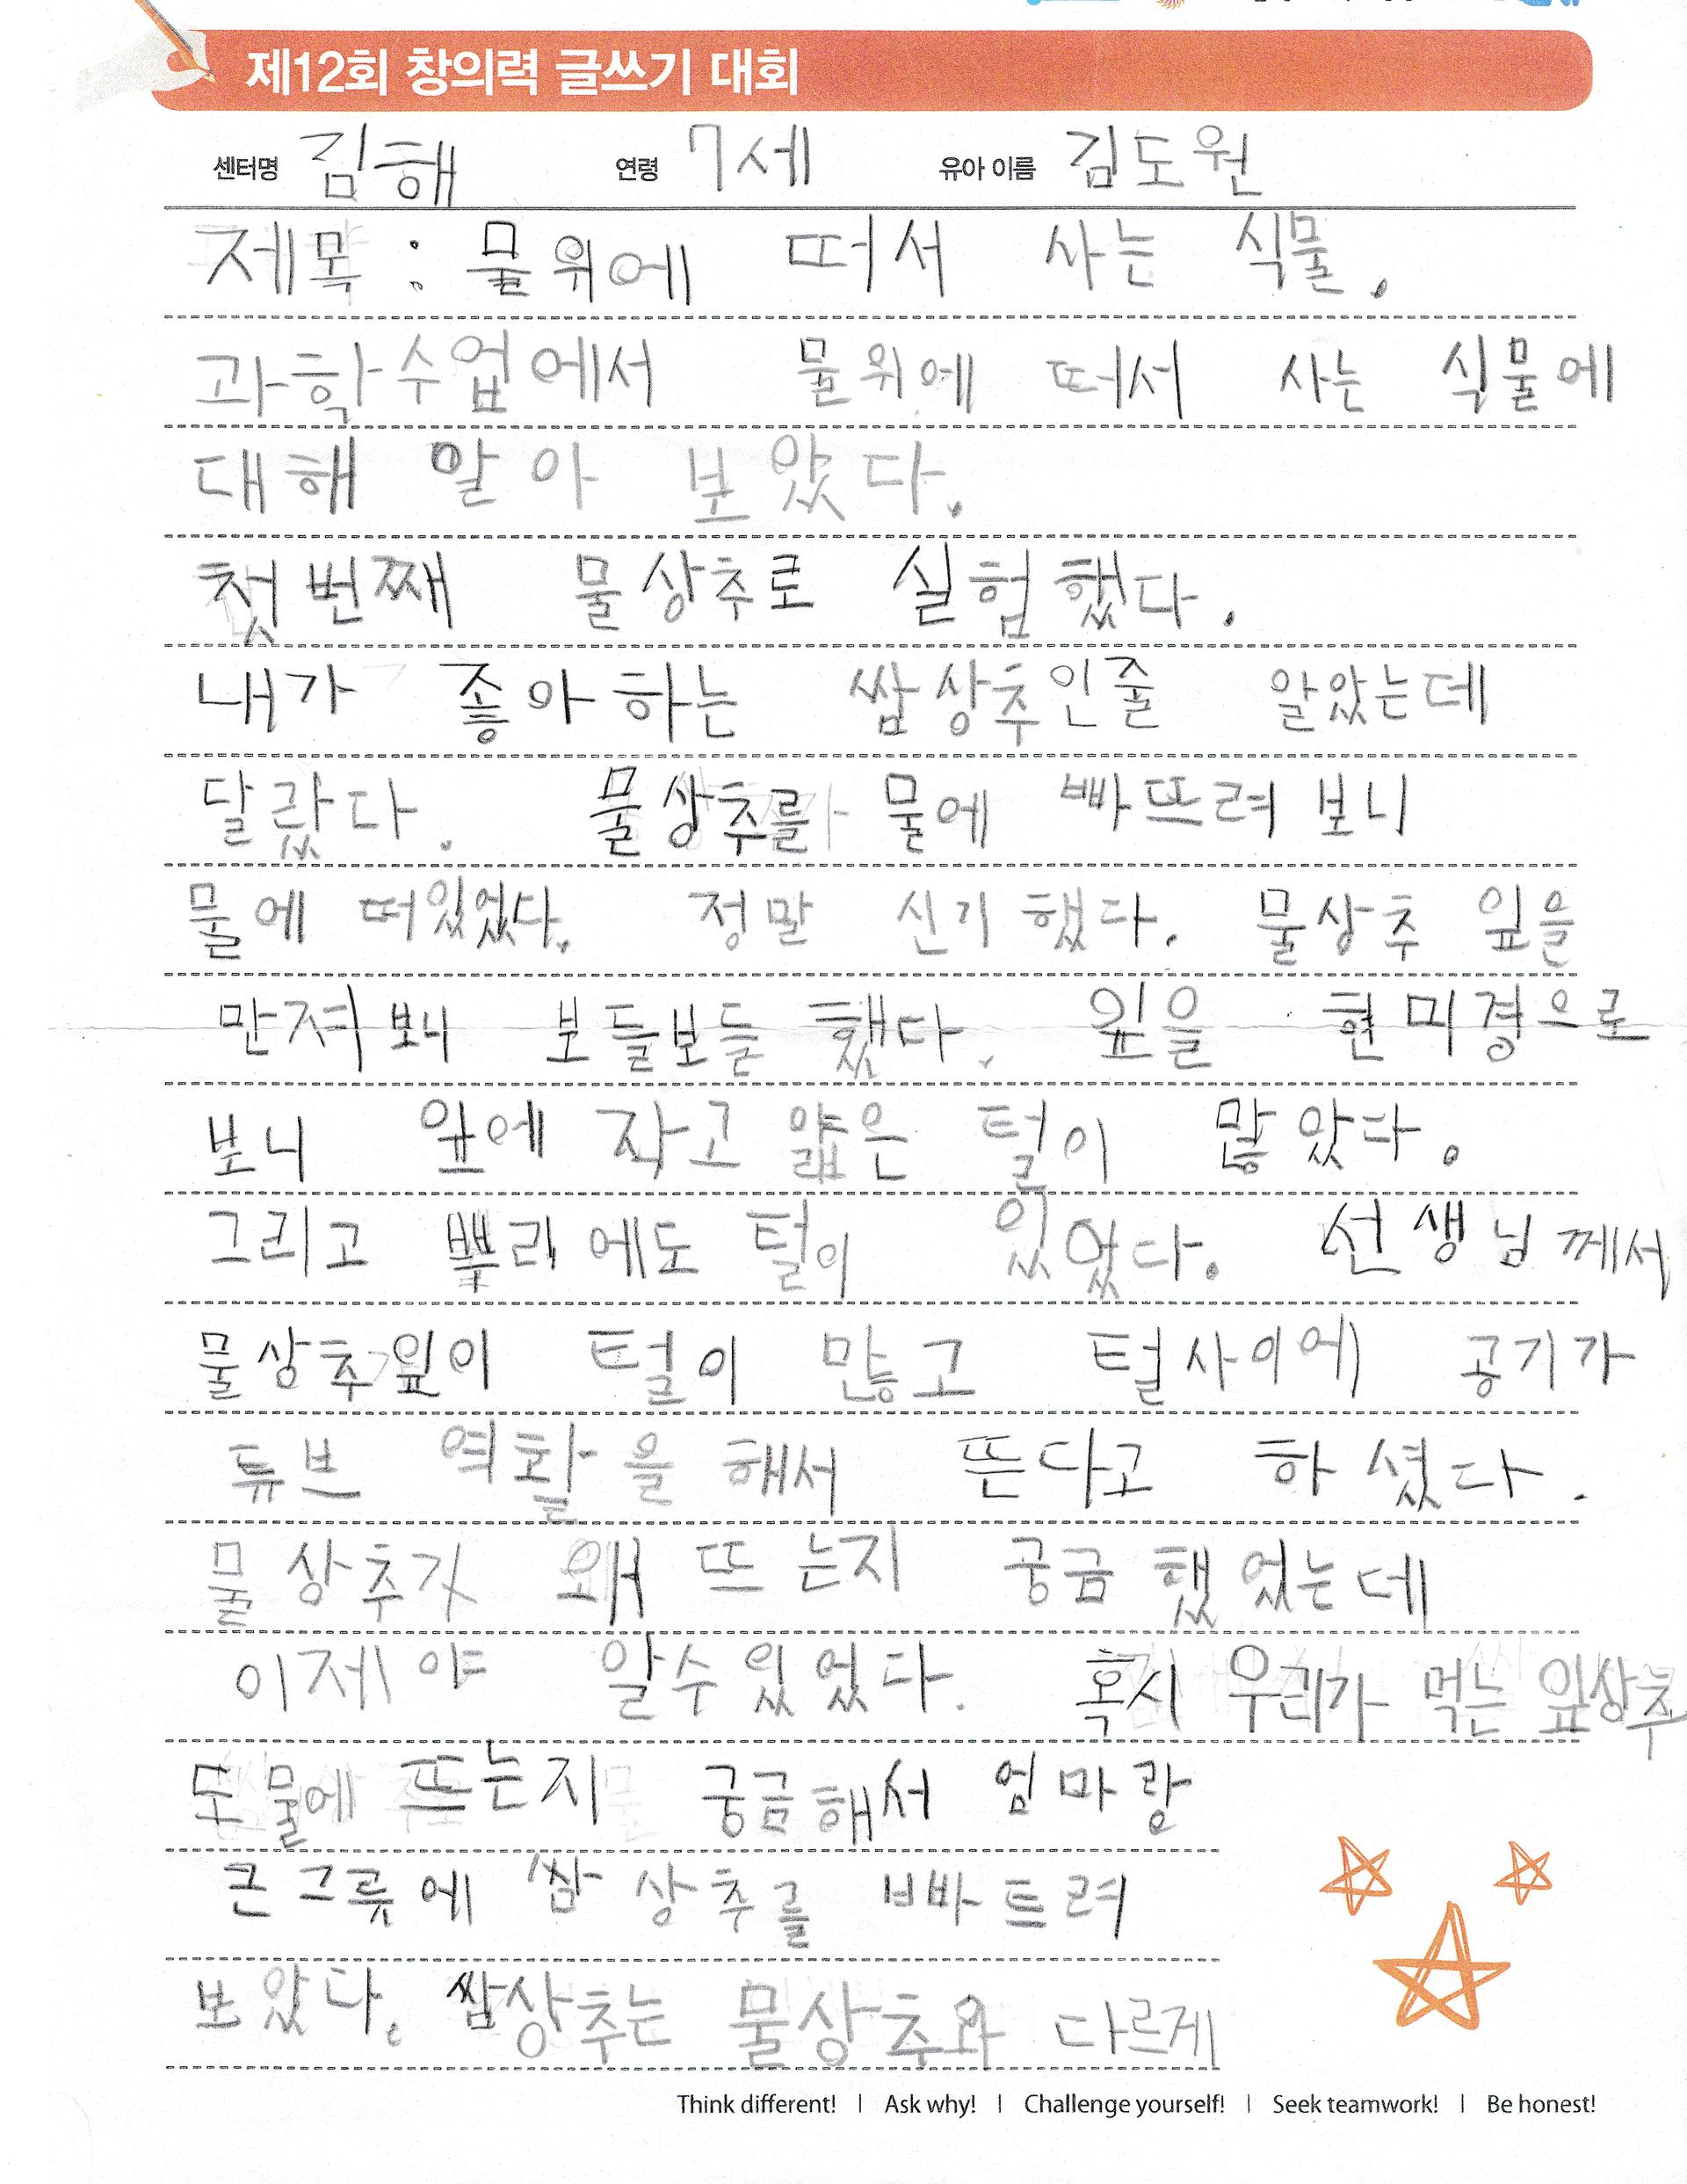 제12회 창의력 글쓰기 대회
센터명 김해 연령 7세 유아 이름 김도원
제목 : 물위에 떠서 사는 식물.
과학수업에서 물위에 떠서 사는 식물에
대해 알아 보았다.
첫번째 물상추로 실험했다.
내가 좋아하는 쌈상추인줄 알았는데
달랐다. 물상추를 물에 빠뜨려보니
물에 떠있었다. 정말 신기했다. 물상추 잎을
만져보니 보들보들했다. 잎을 현미경으로
보니 잎에 작고 얇은 털이 많았다.
그리고 뿌리에도 털이 있었다. 선생님께서
물상추잎이 털이 많고 털사이에 공기가
튜브 역활을 해서 뜬다고 하셨다.
물상추가 왜 뜨는지 궁금했었는데
이제야 알수있었다. 혹시 우리가 먹는 잎상추
도 물에 뜨는지 궁금해서 엄마랑
큰그릇에 쌈상추를 빠트려
보았다. 쌈상추는 물상추와 다르게
Think different! | Ask why! | Challenge yourself! | Seek teamwork! | Be honest!